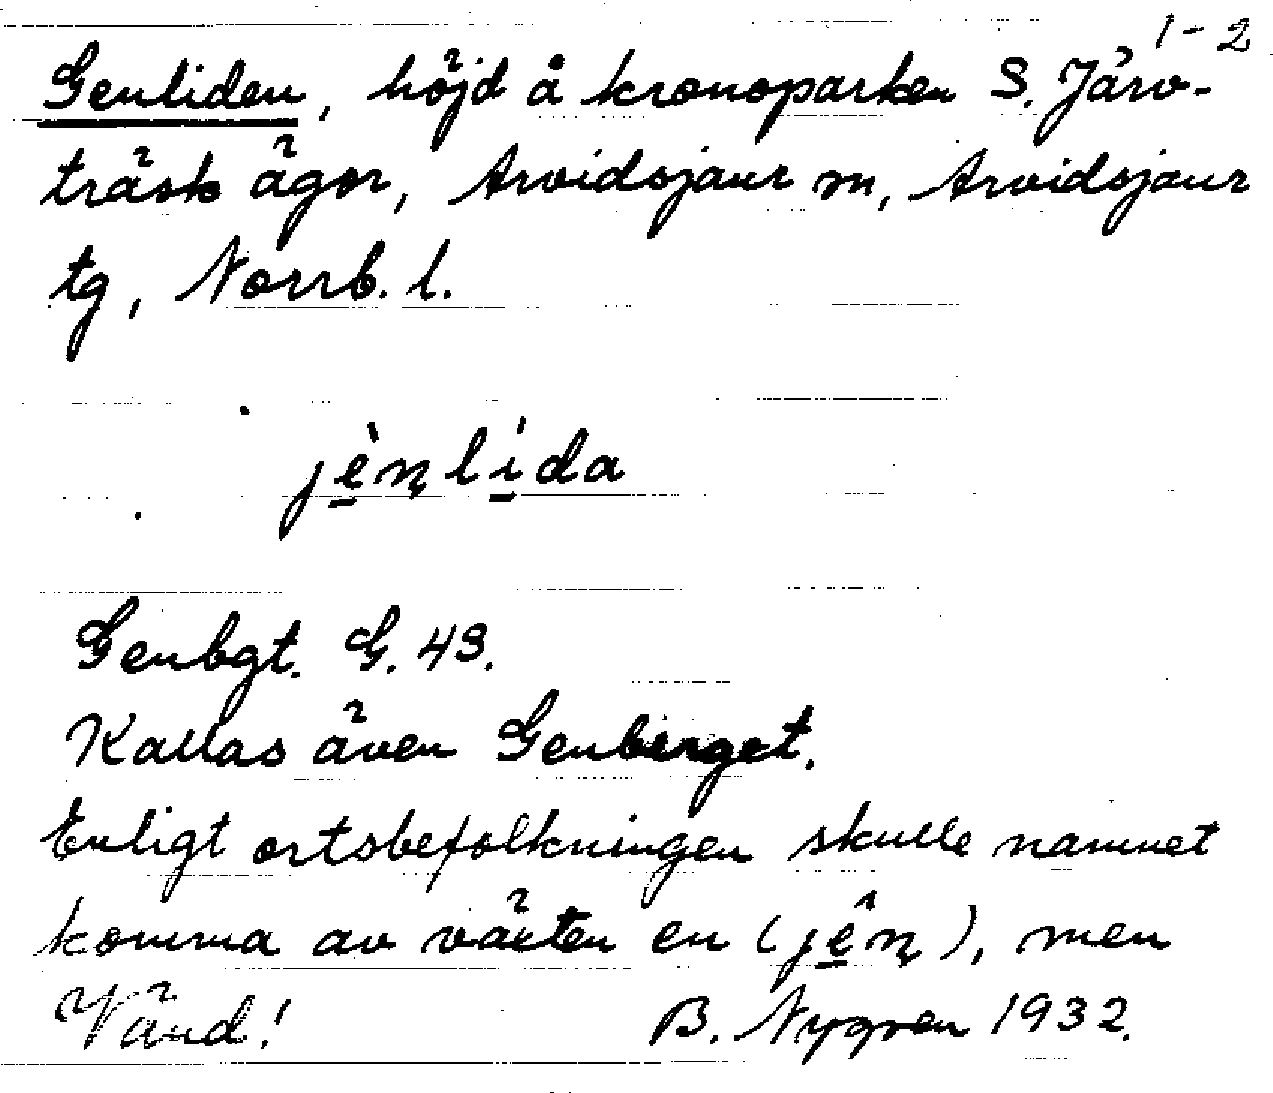 1-2
Genliden, höjd å kronoparken S. Järv-
träsk ägor, Arvidsjaur sn, Arvidsjaur
tg, Norrb. l.
jènlída
Genbgt. G. 43.
Kallas även Genberget.
Enligt ortsbefolkningen skulle namnet
komma av växten en (jên), men
Vänd! B. Nygren 1932.